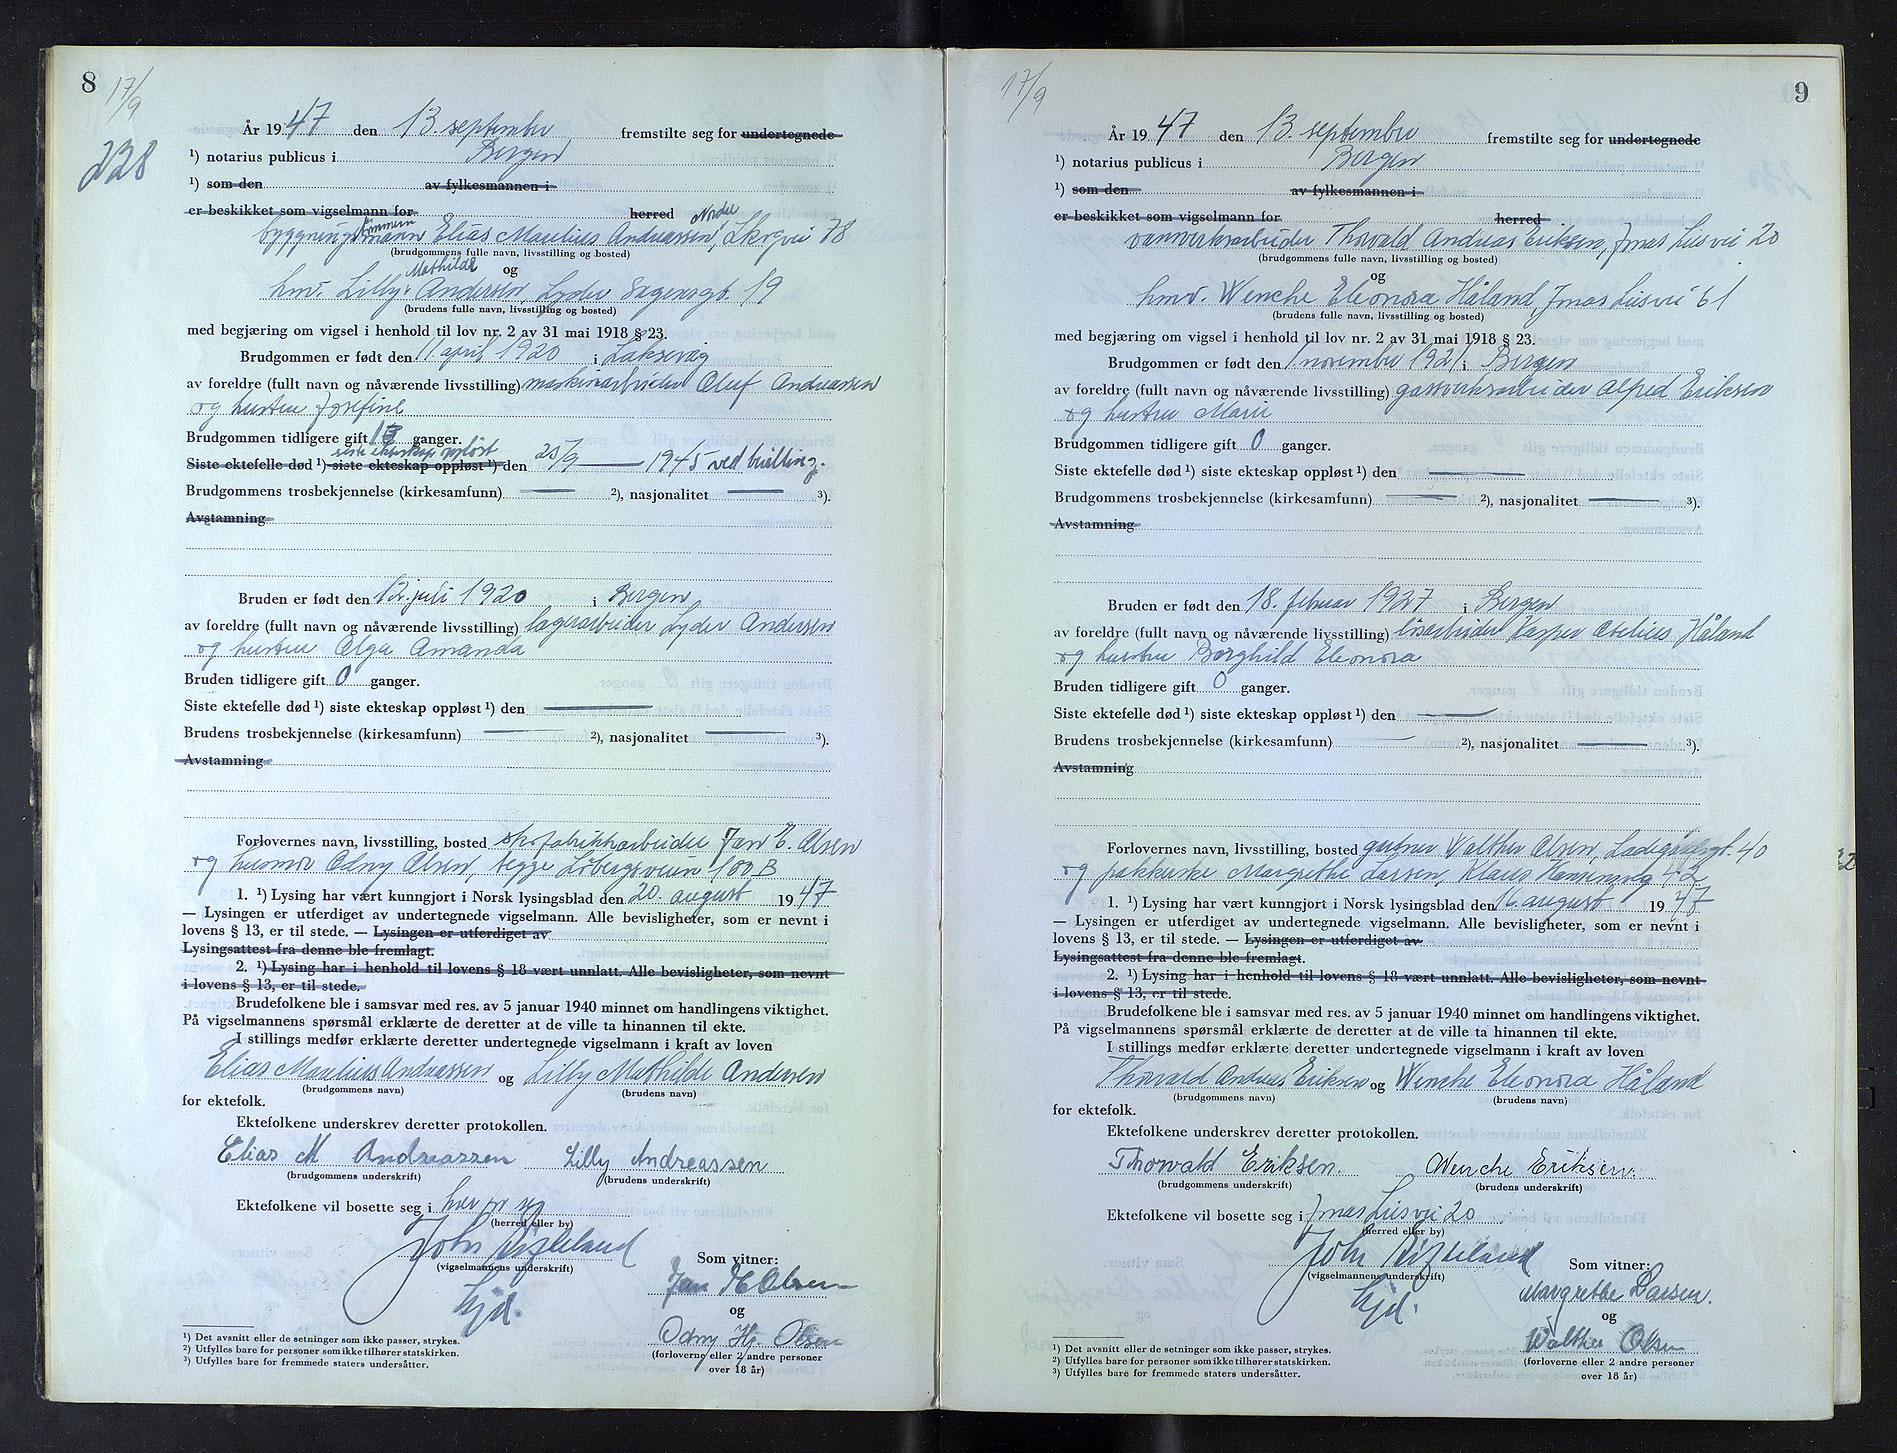 8 17/9
228
År 1947 den 13. september fremstilte seg for undertegnede
¹) notarius publicus i Bergen
¹) som den av fylkesmannen i
er beskikket som vigselmann for herred
byggningstømmermann Elias Marelius Andreassen, Nordre Skogvei 78
(brudgommens fulle navn, livsstilling og bosted)
og
hmv. Lilly Mathilde Andersen, Lyder Sagensgt. 19
(brudens fulle navn, livsstilling og bosted)
med begjæring om vigsel i henhold til lov nr. 2 av 31 mai 1918 § 23.
Brudgommen er født den 11 april 1920 i Laksevåg
av foreldre (fullt navn og nåværende livsstilling) maskinarbeider Oluf Andreassen
og hustru Josefine
Brudgommen tidligere gift 1 ganger.
siste ekteskap oppløst
Siste ektefelle død ¹) siste ekteskap oppløst ¹) den 25/9 — 1945 ved bevilling.
Brudgommens trosbekjennelse (kirkesamfunn) — ²), nasjonalitet — ³).
Avstamning
Bruden er født den 12. juli 1920 i Bergen
av foreldre (fullt navn og nåværende livsstilling) lagerarbeider Lyder Andersen
og hustru Olga Amanda
Bruden tidligere gift 0 ganger.
Siste ektefelle død ¹) siste ekteskap oppløst ¹) den —
Brudens trosbekjennelse (kirkesamfunn) — ²), nasjonalitet — ³).
Avstamning
Forlovernes navn, livsstilling, bosted skofabrikkarbeider Jan E. Olsen
og husmor Odny Olsen, begge Løbergsveien 100 B
1. ¹) Lysing har vært kunngjort i Norsk lysingsblad den 20. august 1947
— Lysingen er utferdiget av undertegnede vigselmann. Alle bevisligheter, som er nevnt i
lovens § 13, er til stede. — Lysingen er utferdiget av
Lysingsattest fra denne ble fremlagt.
2. ¹) Lysing har i henhold til lovens § 18 vært unnlatt. Alle bevisligheter, som nevnt
i lovens § 13, er til stede.
Brudefolkene ble i samsvar med res. av 5 januar 1940 minnet om handlingens viktighet.
På vigselmannens spørsmål erklærte de deretter at de ville ta hinannen til ekte.
I stillings medfør erklærte deretter undertegnede vigselmann i kraft av loven
Elias Marelius Andreassen og Lilly Mathilde Andersen
(brudgommens navn) (brudens navn)
for ektefolk.
Ektefolkene underskrev deretter protokollen.
Elias M Andreassen Lilly Andreassen
(brudgommens underskrift) (brudens underskrift)
Ektefolkene vil bosette seg i hver for seg
(herred eller by)
John
(vigselmannens underskrift) Som vitner:
Jan E Olsen
og
Odny Hj. Olsen
(forloverne eller 2 andre personer
over 18 år)
¹) Det avsnitt eller de setninger som ikke passer, strykes.
²) Utfylles bare for personer som ikke tilhører statskirken.
³) Utfylles bare for fremmede staters undersåtter.
17/9 9
År 1947 den 13 september fremstilte seg for undertegnede
¹) notarius publicus i Bergen
¹) som den av fylkesmannen i
er beskikket som vigselmann for herred
vannverksarbeider Thorvald Andreas Eriksen, Jonas Liesvei 20
(brudgommens fulle navn, livsstilling og bosted)
og
hmv. Wenche Eleonora Håland, Jonas Liesvei 61
(brudens fulle navn, livsstilling og bosted)
med begjæring om vigsel i henhold til lov nr. 2 av 31 mai 1918 § 23.
Brudgommen er født den 1 november 1921 i Bergen
av foreldre (fullt navn og nåværende livsstilling) gassverksarbeider Alfred Eriksen
og hustru Marie
Brudgommen tidligere gift 0 ganger.
Siste ektefelle død ¹) siste ekteskap oppløst ¹) den —
Brudgommens trosbekjennelse (kirkesamfunn) — ²), nasjonalitet — ³).
Avstamning
Bruden er født den 18. februar 1927 i Bergen
av foreldre (fullt navn og nåværende livsstilling) løsarbeider Kasper Håland
og hustru Borghild Eleonora
Bruden tidligere gift 0 ganger.
Siste ektefelle død ¹) siste ekteskap oppløst ¹) den —
Brudens trosbekjennelse (kirkesamfunn) — ²), nasjonalitet — ³).
Avstamning
Forlovernes navn, livsstilling, bosted gartner Walther Olsen, Ladegårdsgt. 40
og pakkerske Margrethe Larsen, Klaus Hansensveg 42
1. ¹) Lysing har vært kunngjort i Norsk lysingsblad den 16. august 1947
— Lysingen er utferdiget av undertegnede vigselmann. Alle bevisligheter, som er nevnt i
lovens § 13, er til stede. — Lysingen er utferdiget av
Lysingsattest fra denne ble fremlagt.
2. ¹) Lysing har i henhold til lovens § 18 vært unnlatt. Alle bevisligheter, som nevnt
i lovens § 13, er til stede.
Brudefolkene ble i samsvar med res. av 5 januar 1940 minnet om handlingens viktighet.
På vigselmannens spørsmål erklærte de deretter at de ville ta hinannen til ekte.
I stillings medfør erklærte deretter undertegnede vigselmann i kraft av loven
Thorvald Andreas Eriksen og Wenche Eleonora Håland
(brudgommens navn) (brudens navn)
for ektefolk.
Ektefolkene underskrev deretter protokollen.
Thorvald Eriksen. Wenche Eriksen.
(brudgommens underskrift) (brudens underskrift)
Ektefolkene vil bosette seg i Jonas Liesvei 20
(herred eller by)
John
(vigselmannens underskrift) Som vitner:
Margrethe Larsen.
og
Walther Olsen
(forloverne eller 2 andre personer
over 18 år)
¹) Det avsnitt eller de setninger som ikke passer, strykes.
²) Utfylles bare for personer som ikke tilhører statskirken.
³) Utfylles bare for fremmede staters undersåtter.